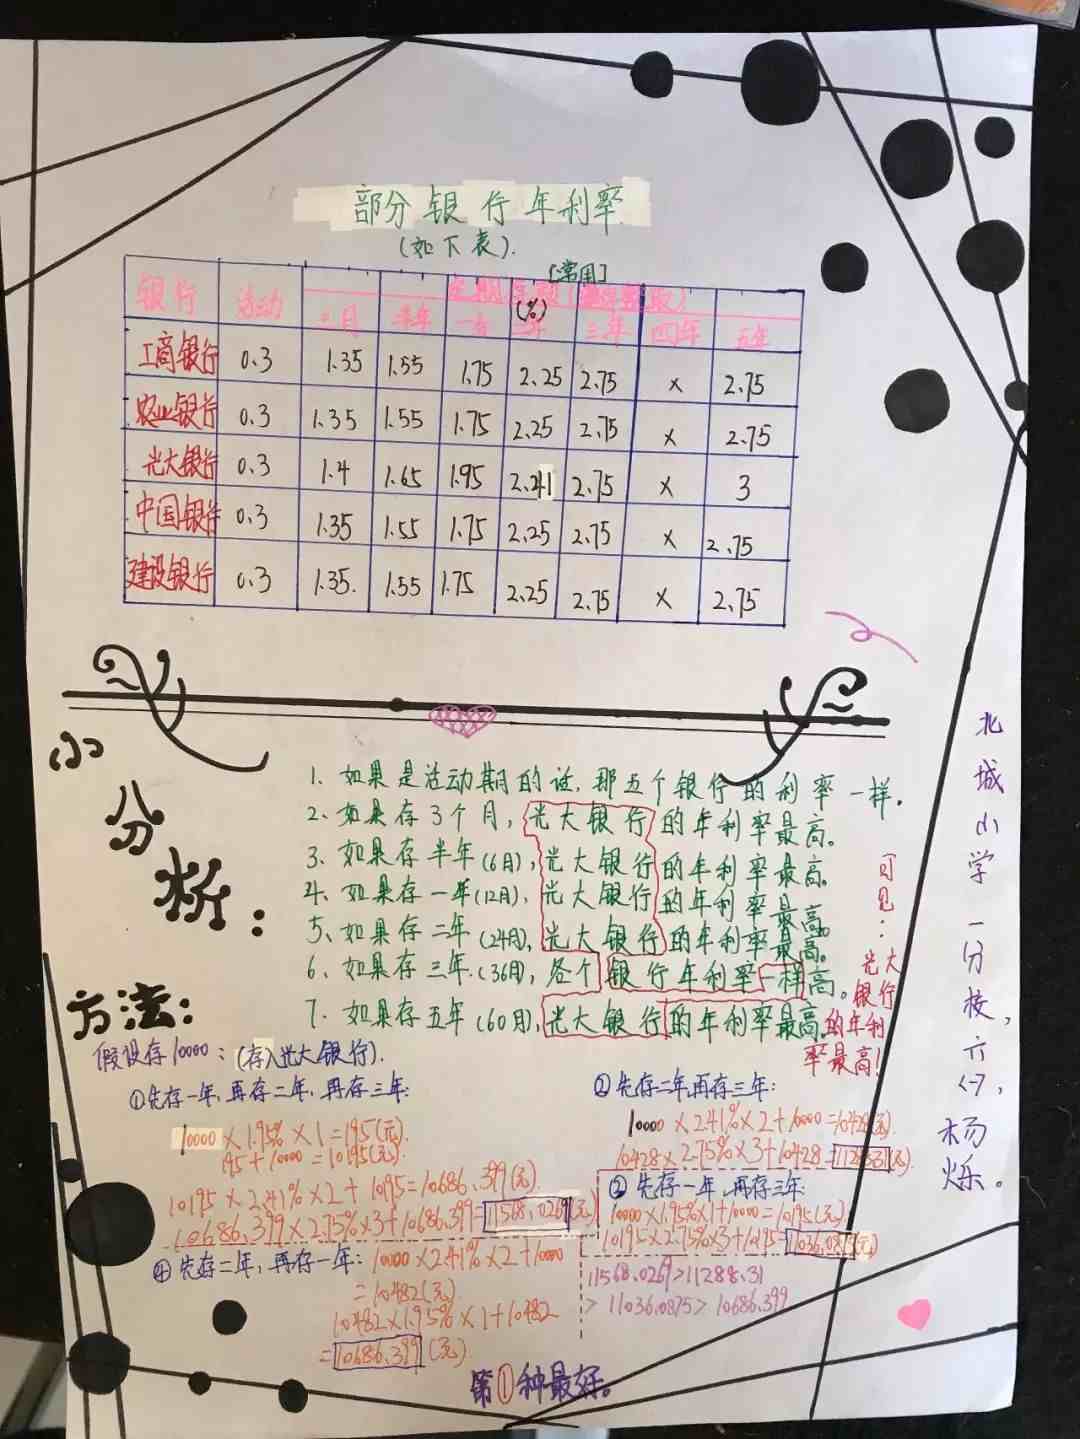 部分银行年利率
(如下表).
[常用]
银行 活动 定期
(%)
三月 半年 一年 二年 三年 四年 五年
工商银行 0.3 1.35 1.55 1.75 2.25 2.75 × 2.75
农业银行 0.3 1.35 1.55 1.75 2.25 2.75 × 2.75
光大银行 0.3 1.4 1.65 1.95 2.41 2.75 × 3
中国银行 0.3 1.35 1.55 1.75 2.25 2.75 × 2.75
建设银行 0.3 1.35. 1.55 1.75 2.25 2.75 × 2.75
小分析:
1、如果是活动期的话,那五个银行的利率一样.
2、如果存3个月,光大银行的年利率最高。
3、如果存半年(6月),光大银行的年利率最高。
4、如果存一年(12月),光大银行的年利率最高。
5、如果存二年(24月),光大银行的年利率最高。
6、如果存三年.(36月),各个银行年利率一样高。
7、如果存五年(60月),光大银行的年利率最高.
可见:光大
银行
的年利
率最高!
方法:
假设存10000:(存入光大银行).
①先存一年,再存二年,再存三年:
10000×1.95%×1=195(元).
195+10000=10195(元).
10195×2.41%×2+10195=10686.399(元).
10686.399×2.75%×3+10686.399=11568.0269(元)
②先存二年,再存三年:
10000×2.41%×2+10000=10428(元).
10428×2.75%×3+10428=11288.31(元).
③先存一年,再存三年:
10000×1.95%×1+10000=10195(元)
10195×2.75%×3+10195=11036.0875(元)
④先存二年,再存一年:10000×2.41%×2+10000
=10482(元)
10482×1.95%×1+10482
=10686.399(元).
11568.0269>11288.31
>11036.0875>10686.399
第①种最好。
北城小学一分校,六<7>,杨烁。